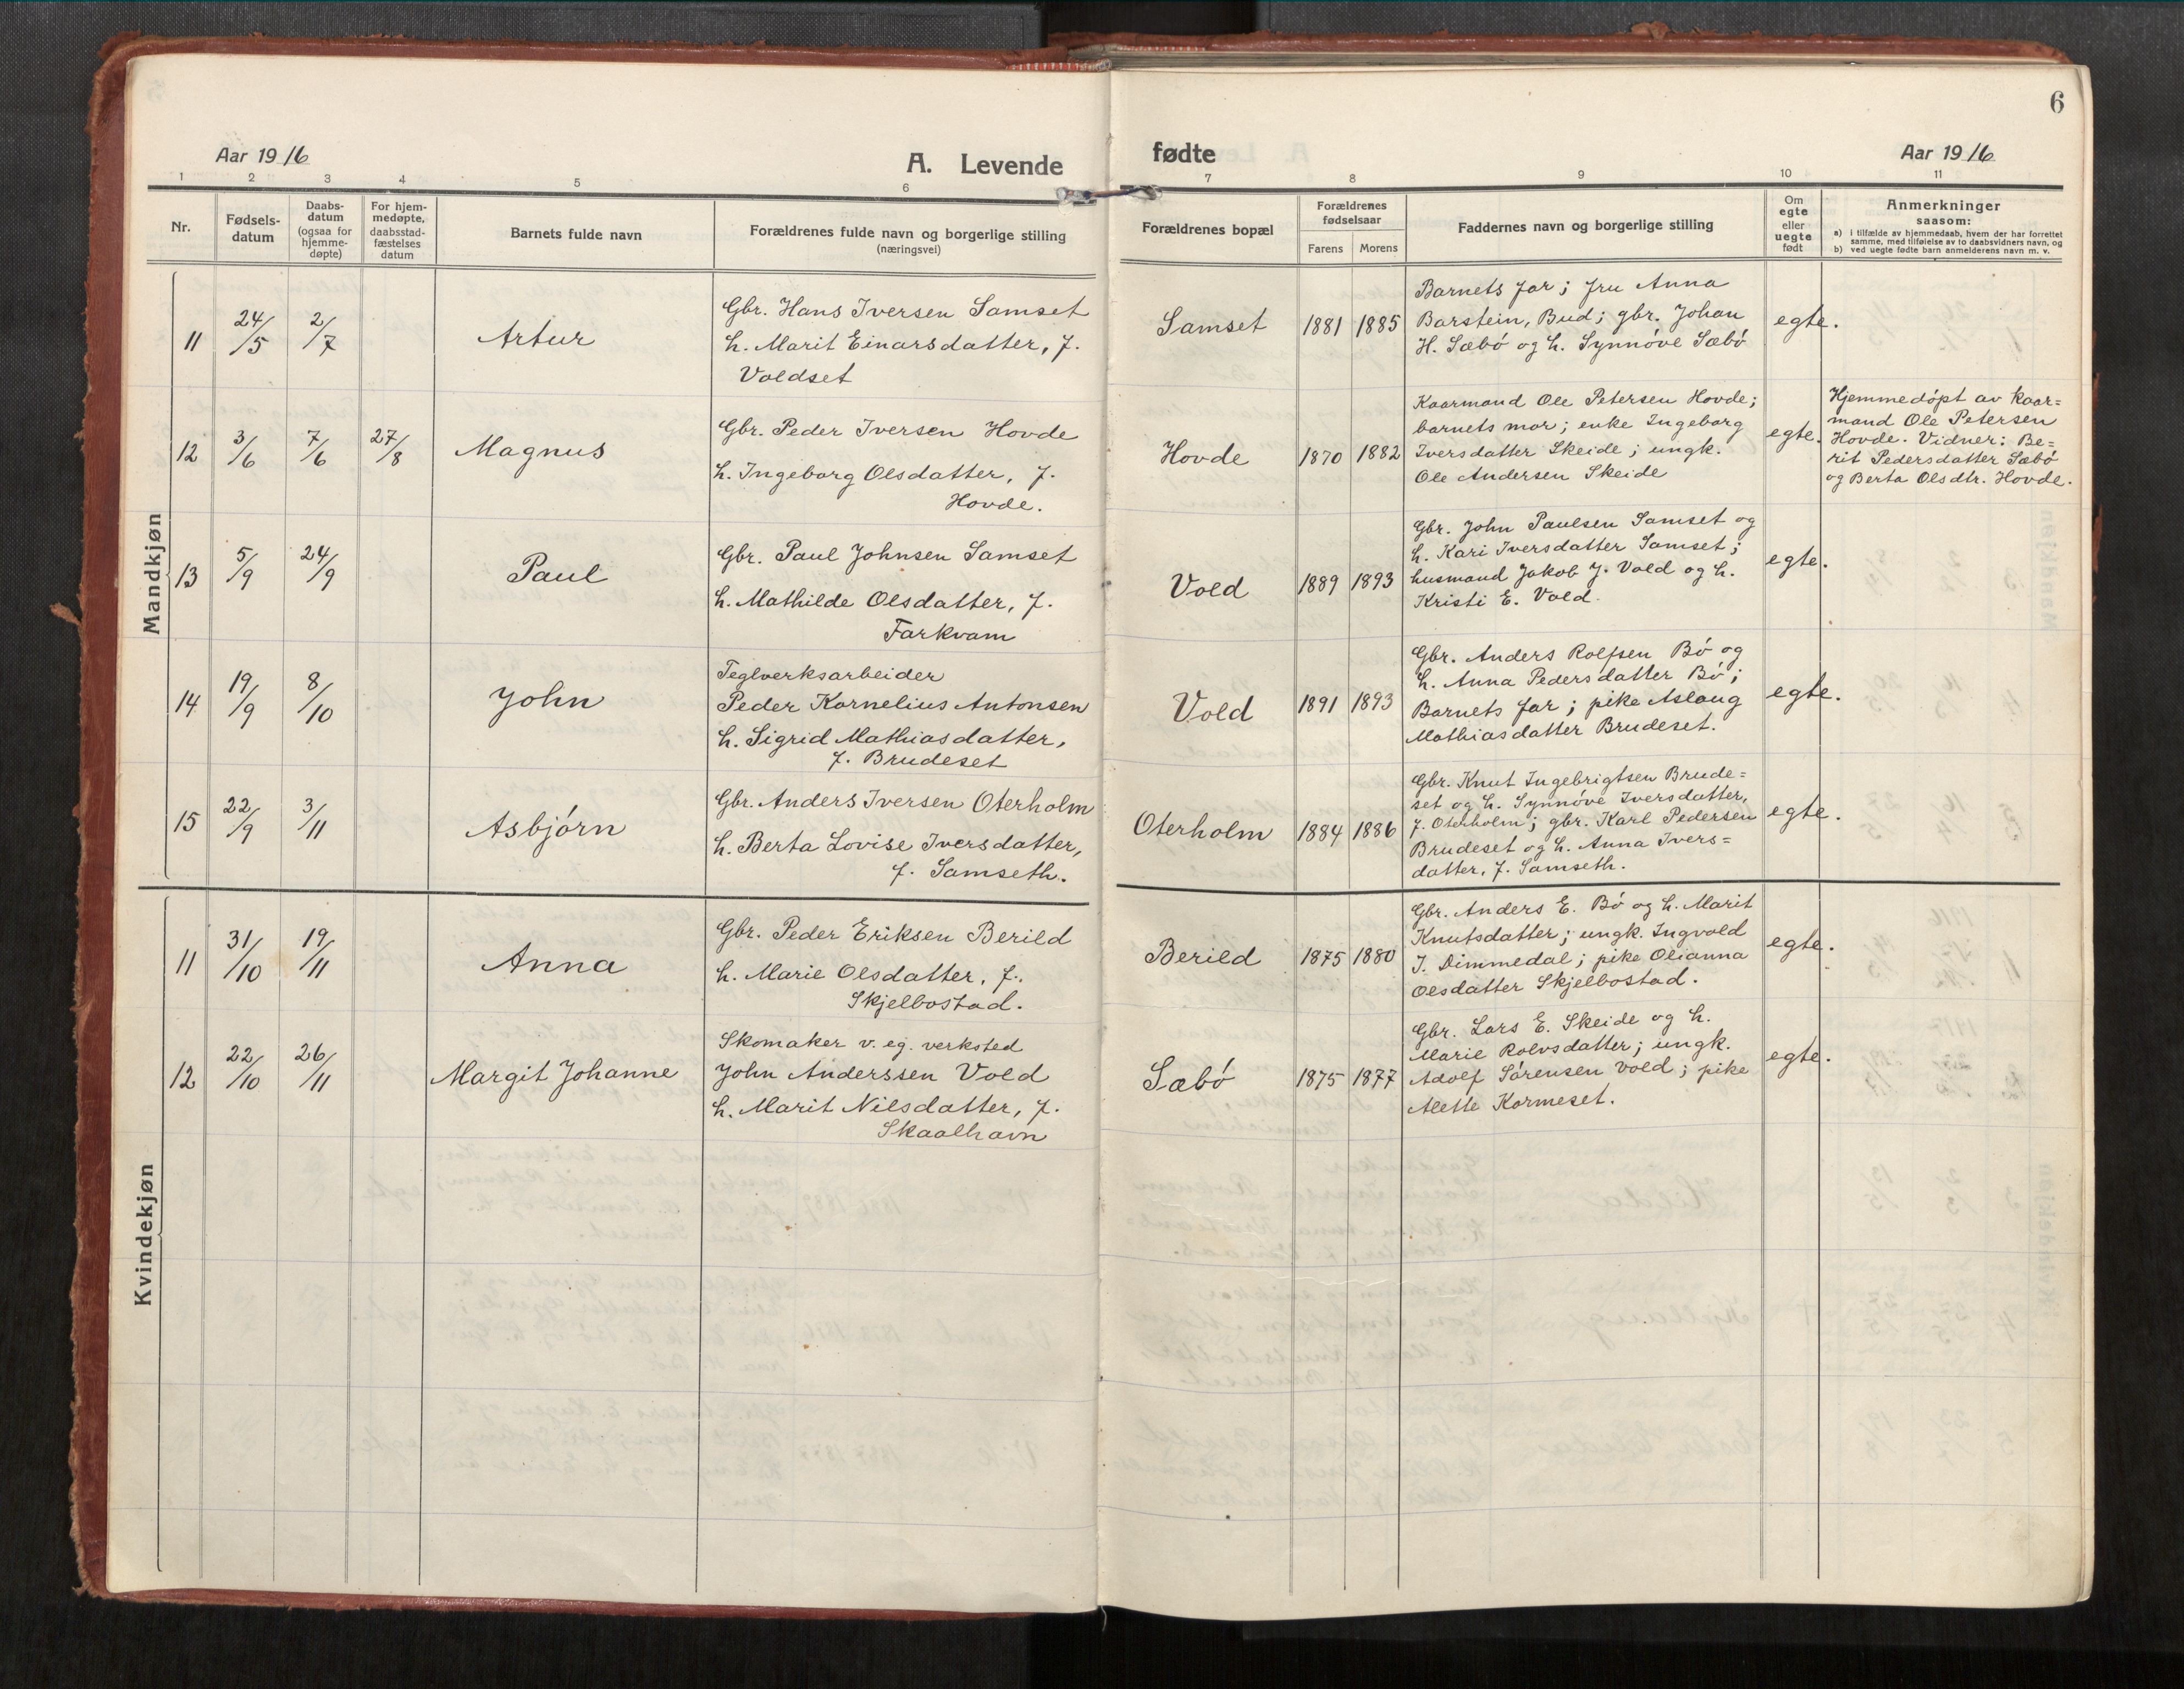 6
Aar 1916
A. Levende fødte
Aar 1916
1 2 3 4 5 6 7 8 9 10 11
Nr.
Fødsels-
datum
Daabs-
datum
(ogsaa for
hjemme-
døpte)
For hjem-
medøpte,
daabsstad-
fæstelses
datum
Barnets fulde navn
Forældrenes fulde navn og borgerlige stilling
(næringsvei)
Forældrenes bopæl
Forældrenes
fødselsaar
Farens Morens
Faddernes navn og borgerlige stilling
Om
egte
eller
uegte
født
Anmerkninger
saasom:
a) i tilfælde av hjemmedaab, hvem der har forrettet
samme, med tilføielse av to daabsvidners navn, og
b) ved uegte fødte barn anmelderens navn m. v.
Mandkjøn
11 24/5 2/7 Artur
Gbr. Hans Iversen Samset
h. Marit Einarsdatter, f.
Voldset
Samset 1881 1885
Barnets far; fru Anna
Barstein, Bud; gbr. Johan
H. Sæbó og h. Synnóve Sæbó
egte.
12 3/6 7/6 27/8 Magnus
Gbr. Peder Iversen Hovde
h. Ingeborg Olsdatter, f.
Hovde.
Hovde 1870 1882
Kaarmand Ole Petersen Hovde;
barnets mor; enke Ingeborg
Iversdatter Skeide; ungk.
Ole Andersen Skeide
egte.
Hjemmedópt av kaar=
mand Ole Petersen
Hovde. Vidner: Be=
rit Pedersdatter Sæbó
og Berta Olsdtr. Hovde.
13 5/9 24/9 Paul
Gbr. Paul Johnsen Samset
h. Mathilde Olsdatter, f.
Farkvam
Vold 1889 1893
Gbr. John Paulsen Samset og
h. Kari Iversdatter Samset;
husmand Jakob J. Vold og h.
Kristi E. Vold.
egte.
14 19/9 8/10 John
Teglverksarbeider
Peder Kornelius Antonsen
h. Sigrid Mathiasdatter,
f. Brudeset
Vold 1891 1893
Gbr. Anders Rolfsen Bó og
h. Anna Pedersdatter Bó;
Barnets far; pike Aslaug
Mathiasdatter Brudeset.
egte.
15 22/9 3/11 Asbjórn
Gbr. Anders Iversen Oterholm
h. Berta Lovise Iversdatter,
f. Samseth.
Oterholm 1884 1886
Gbr. Knut Ingebrigtsen Brude=
set og h. Synnóve Iversdatter,
f. Oterholm; gbr. Karl Pedersen
Brudeset og h. Anna Ivers=
datter, f. Samseth.
egte.
Kvindekjøn
11 31/10 19/11 Anna
Gbr. Peder Eriksen Berild
h. Marie Olsdatter, f.
Skjelbostad.
Berild 1875 1880
Gbr. Anders E. Bó og h. Marit
Knutsdatter; ungk. Ingvald
I. Dimmedal; pike Olianna
Olsdatter Skjelbostad.
egte.
12 22/10 26/11 Margit Johanne
Skomaker v. eg. verksted
John Anderssen Vold
h. Marit Nilsdatter, f.
Skaalhavn
Sæbó 1875 1877
Gbr. Lars E. Skeide og h.
Marie Rolvsdatter; ungk.
Adolf Sórensen Vold; pike
Alette Kormeset.
egte.